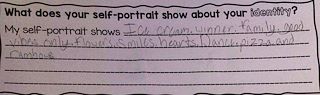 What does your self-portrait show about your identity?
My self-portrait shows Ice cream, winner, family, good
vibes only, flowers, smiles, hearts, dance, pizza, and
rainbows